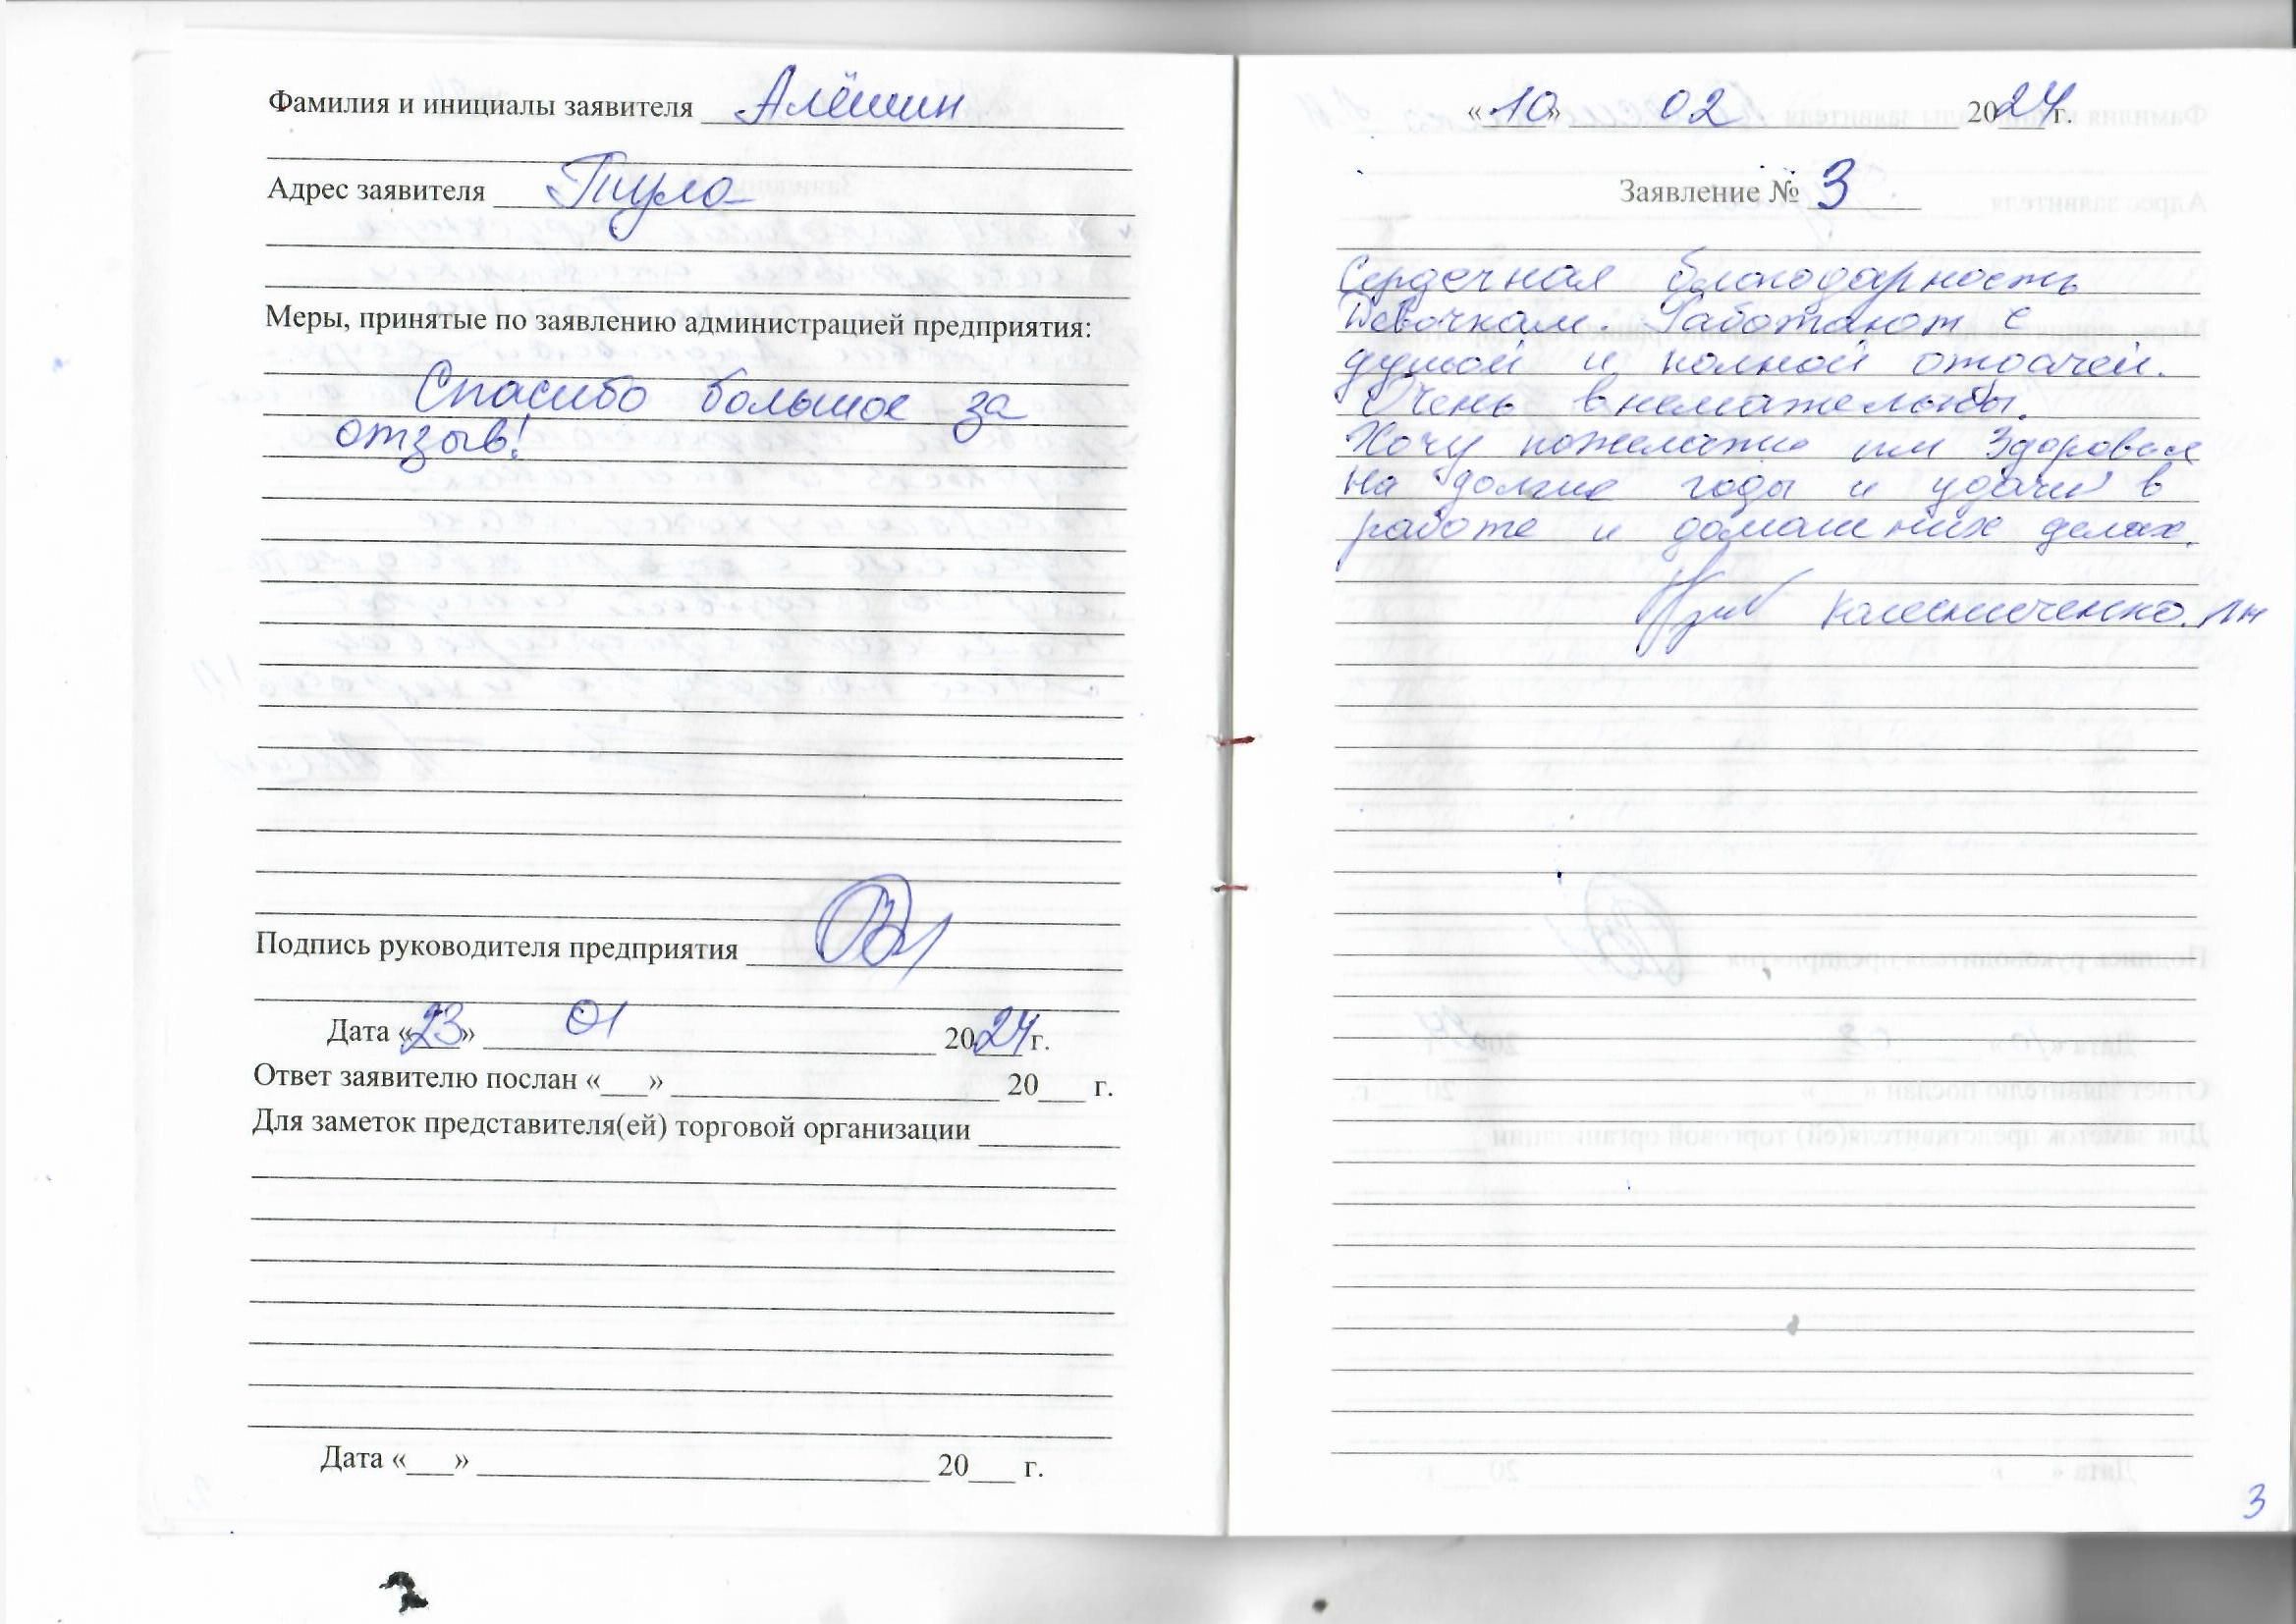 Фамилия и инициалы заявителя Алёшин
Адрес заявителя Тула
Меры, принятые по заявлению администрацией предприятия:
Спасибо большое за
отзыв!
Подпись руководителя предприятия
Дата «23» 01 2024 г.
Ответ заявителю послан «___» 20___ г.
Для заметок представителя(ей) торговой организации
Дата «___» 20___ г.
2
«10» 02 2024 г.
Заявление № 3
Сердечная благодарность
Девочкам. Работают с
душой и полной отдачей.
Очень внемательны.
Хочу пожелать им Здоровья
на долгие годы и удачи в
работе и домашних делах.
3